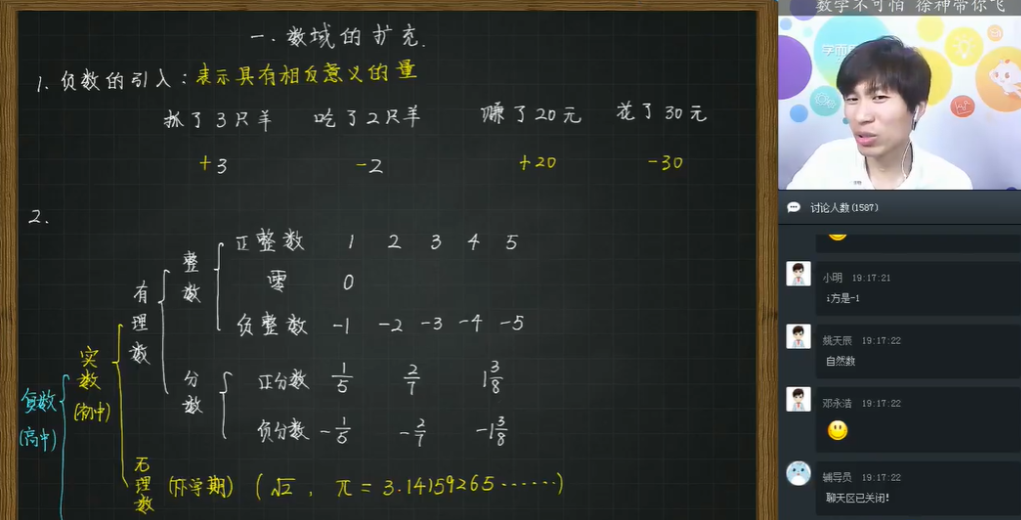 一.数域的扩充.
1.负数的引入:表示具有相反意义的量
抓了3只羊 吃了2只羊 赚了20元 花了30元
+3 -2 +20 -30
2.
正整数 1 2 3 4 5
整数
零 0
有理数
负整数 -1 -2 -3 -4 -5
实数
(初中)
分数
正分数 1/5 2/7 1 3/8
复数
(高中)
负分数 -1/5 -2/7 -1 3/8
无理数 (下学期) (√2, π=3.14159265……)
数学不可怕 徐神带你飞
讨论人数(1587)
小明 19:17:21
i方是-1
姚天辰 19:17:22
自然数
邓永洁 19:17:22
辅导员 19:17:22
聊天区已关闭!